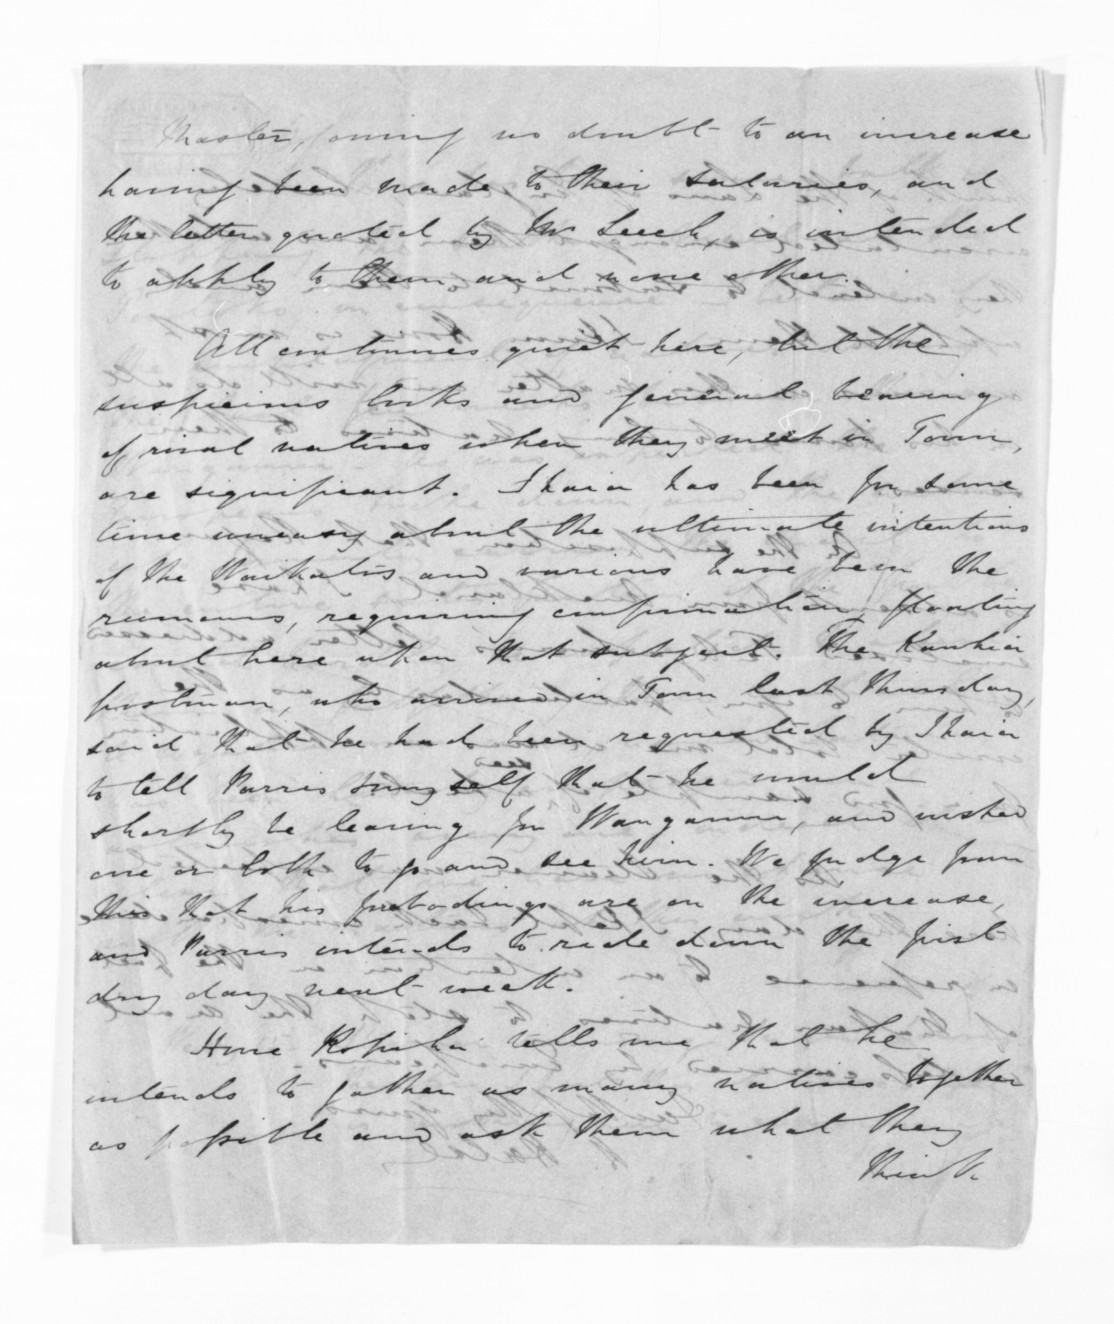 Master, owing no doubt to an increase
having been made to their salaries, and
the letter quoted by Mr Leech is intended
to apply to them and none other.
All continues quiet here, but the
suspicious looks and general bearing
of rival natives when they meet in Town,
are significant. Ihaia has been for some
time uneasy about the ultimate intentions
of the Waikatos and various have been the
rumours, requiring confirmation floating
about here upon that subject. The Kawhia
postman, who arrived in Town last Thursday,
said that he had been requested by Ihaia
to tell Parris & myself that he would
shortly be leaving for Wanganui, and wished
one or both to go and see him. We judge from
this that his forbodings are on the increase,
and Parris intends to ride down the first
dry day next week.
Hone Ropiha tells me that he
intends to gather as many natives together
as possible and ask them what they
think